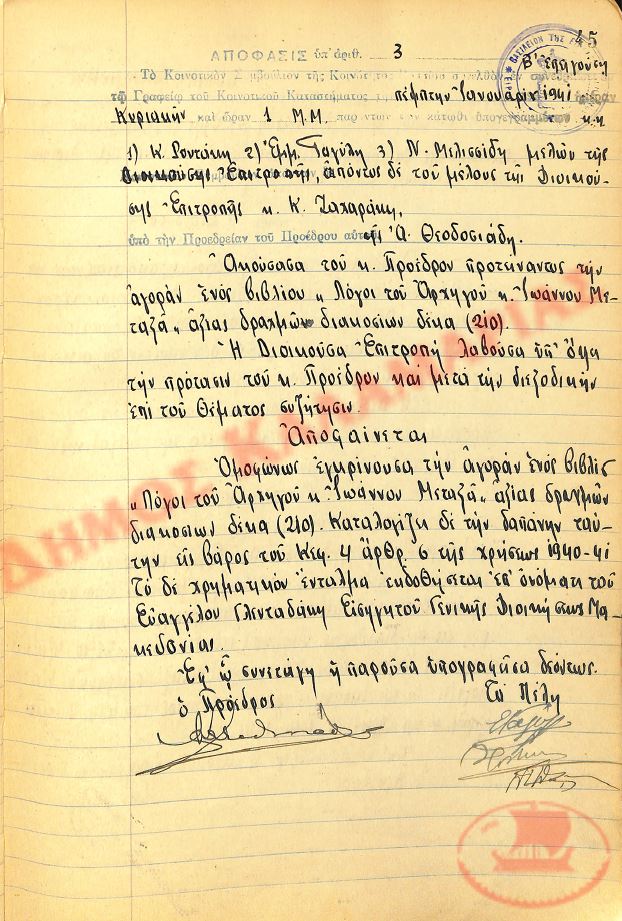 45
ΑΠΟΦΑΣΙΣ ὑπ' ἀριθ. 3
Τὸ Κοινοτικὸν Συμβούλιον τῆς Κοινότητος
τῷ Γραφείῳ τοῦ Κοινοτικοῦ Καταστήματος πέμπτην Ἰανουαρίου 1941
Κυριακὴν καὶ ὥραν 1 Μ.Μ. παρόντων τῶν κάτωθι ὑπογεγραμμένων κ.κ
1) Κ. Ροντάκη 2) Ἐμμ. Ταγύλη 3) Ν. Μελισσίδη μελῶν τῆς
Διοικούσης Ἐπιτροπῆς, ἀπόντος δὲ τοῦ μέλους τῆς Διοικού-
σης Ἐπιτροπῆς κ. Κ. Ζαχαράκη,
ὑπὸ τὴν Προεδρείαν τοῦ Προέδρου αὐτῆς Ἀ. Θεοδοσιάδη.
Ἀκούσασα τοῦ κ. Προέδρου προτείναντος τὴν
ἀγορὰν ἑνὸς βιβλίου „ Λόγοι τοῦ Ἀρχηγοῦ κ. Ἰωάννου Με-
ταξᾶ „ ἀξίας δραχμῶν διακοσίων δέκα (210).
Ἡ Διοικοῦσα Ἐπιτροπὴ λαβοῦσα ὑπ' ὄψει
τὴν πρότασιν τοῦ κ. Προέδρου καὶ μετὰ τὴν διεξοδικὴν
ἐπὶ τοῦ θέματος συζήτησιν.
Ἀποφαίνεται
Ὁμοφώνως ἐγκρίνουσα τὴν ἀγορὰν ἑνὸς βιβλίου
„ Λόγοι τοῦ Ἀρχηγοῦ κ. Ἰωάννου Μεταξᾶ „ ἀξίας δραχμῶν
διακοσίων δέκα (210). Καταλογίζει δὲ τὴν δαπάνην ταύ-
την εἰς βάρος τοῦ Κεφ. 4 ἄρθρ. 6 τῆς χρήσεως 1940-41
Τὸ δὲ χρηματικὸν ἔνταλμα ἐκδοθήσεται ἐπ' ὀνόματι τοῦ
Εὐαγγέλου Γλενταδάκη Εἰσηγητοῦ Γενικῆς Διοικήσεως Μα-
κεδονίας.
Ἐφ' ᾧ συνετάγη ἡ παροῦσα ὑπογραφεῖσα δεόντως.
ὁ Πρόεδρος Τὰ Μέλη
ΔΗΜΟΣ ΚΑΛΑΜΑΡΙΑΣ